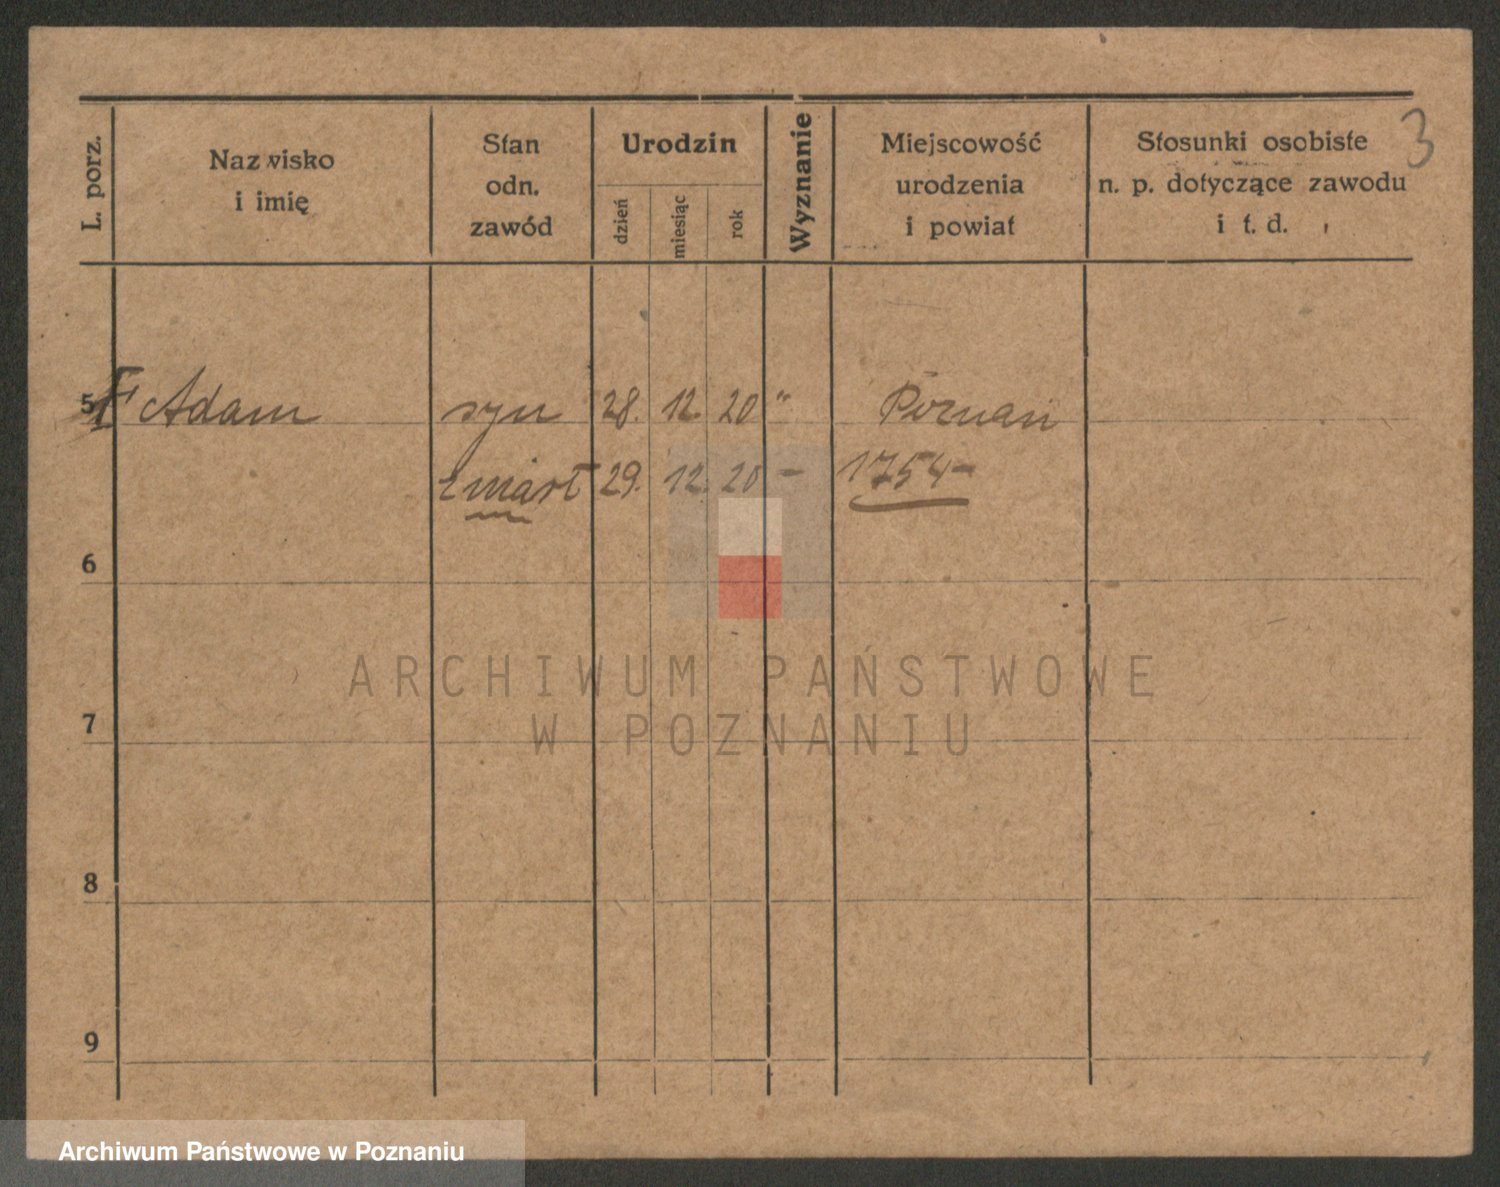 3
L. porz.
Nazwisko
i imię
Stan
odn.
zawód
Urodzin
dzień
miesiąc
rok
Wyznanie
Miejscowość
urodzenia
i powiat
Stosunki osobiste
n. p. dotyczące zawodu
i t. d.
5 Adam syn 28. 12. 20 " Poznań
zmarł 29. 12. 20 – 1754–
6
7
8
9
ARCHIWUM PAŃSTWOWE
W POZNANIU
Archiwum Państwowe w Poznaniu